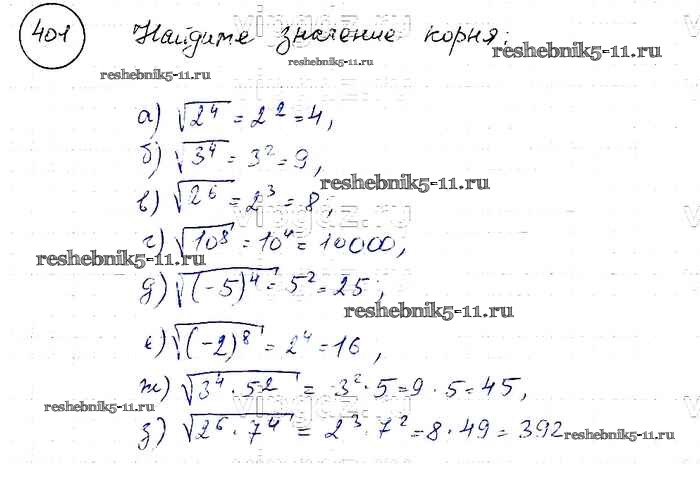 401 Найдите значение корня:
reshebnik5-11.ru
reshebnik5-11.ru
reshebnik5-11.ru
а) √2⁴ = 2² = 4,
б) √3⁴ = 3² = 9,
reshebnik5-11.ru
в) √2⁶ = 2³ = 8,
г) √10⁸ = 10⁴ = 10000,
reshebnik5-11.ru
д) √(-5)⁴ = 5² = 25,
reshebnik5-11.ru
е) √(-2)⁸ = 2⁴ = 16,
ж) √3⁴·5² = 3²·5 = 9·5 = 45,
reshebnik5-11.ru
з) √2⁶·7⁴ = 2³·7² = 8·49 = 392
reshebnik5-11.ru